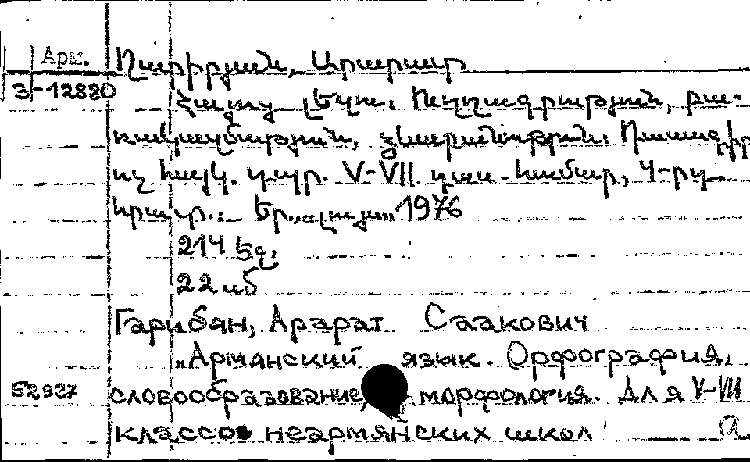 Арм. Ղարիբյան, Արարատ
3-12880
Հայոց լեզու: Ուղղագրություն, բա-
կազմություն, ձևաբանություն: Դասագիրք
ոչ հայկ. դպր. V-VII դաս. համար, 4-րդ
հրատ.: Եր., „Լույս“, 1976
214 եջ.
22 կ
Гарибян, Арарат Саакович
„Армянский язык. Орфография,
52927 словообразование, морфология. Для V-VII
классов неармянских школ а